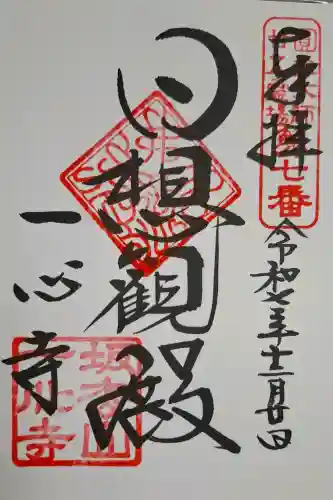 奉拝
七番
令和七年十二月廿日
日想観殿
一心寺
坂松山
一心寺